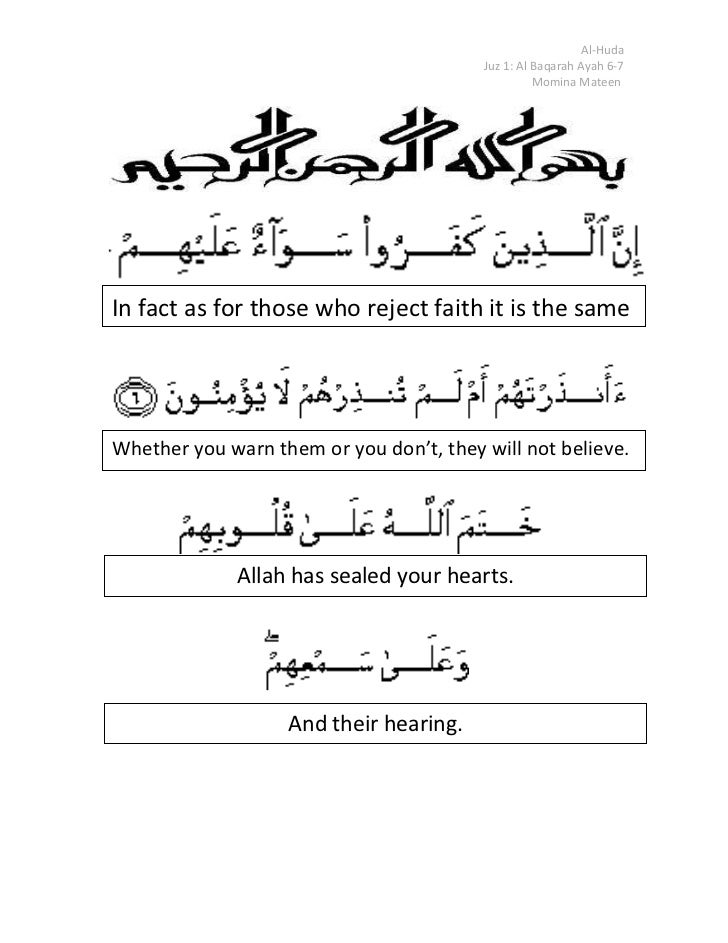 Al-Huda
Juz 1: Al Baqarah Ayah 6-7
Momina Mateen
بسم الله الرحمن الرحيم
إِنَّ ٱلَّذِينَ كَفَرُوا۟ سَوَآءٌ عَلَيْهِمْ
In fact as for those who reject faith it is the same
ءَأَنذَرْتَهُمْ أَمْ لَمْ تُنذِرْهُمْ لَا يُؤْمِنُونَ ٦
Whether you warn them or you don’t, they will not believe.
خَتَمَ ٱللَّهُ عَلَىٰ قُلُوبِهِمْ
Allah has sealed your hearts.
وَعَلَىٰ سَمْعِهِمْ ۖ
And their hearing.